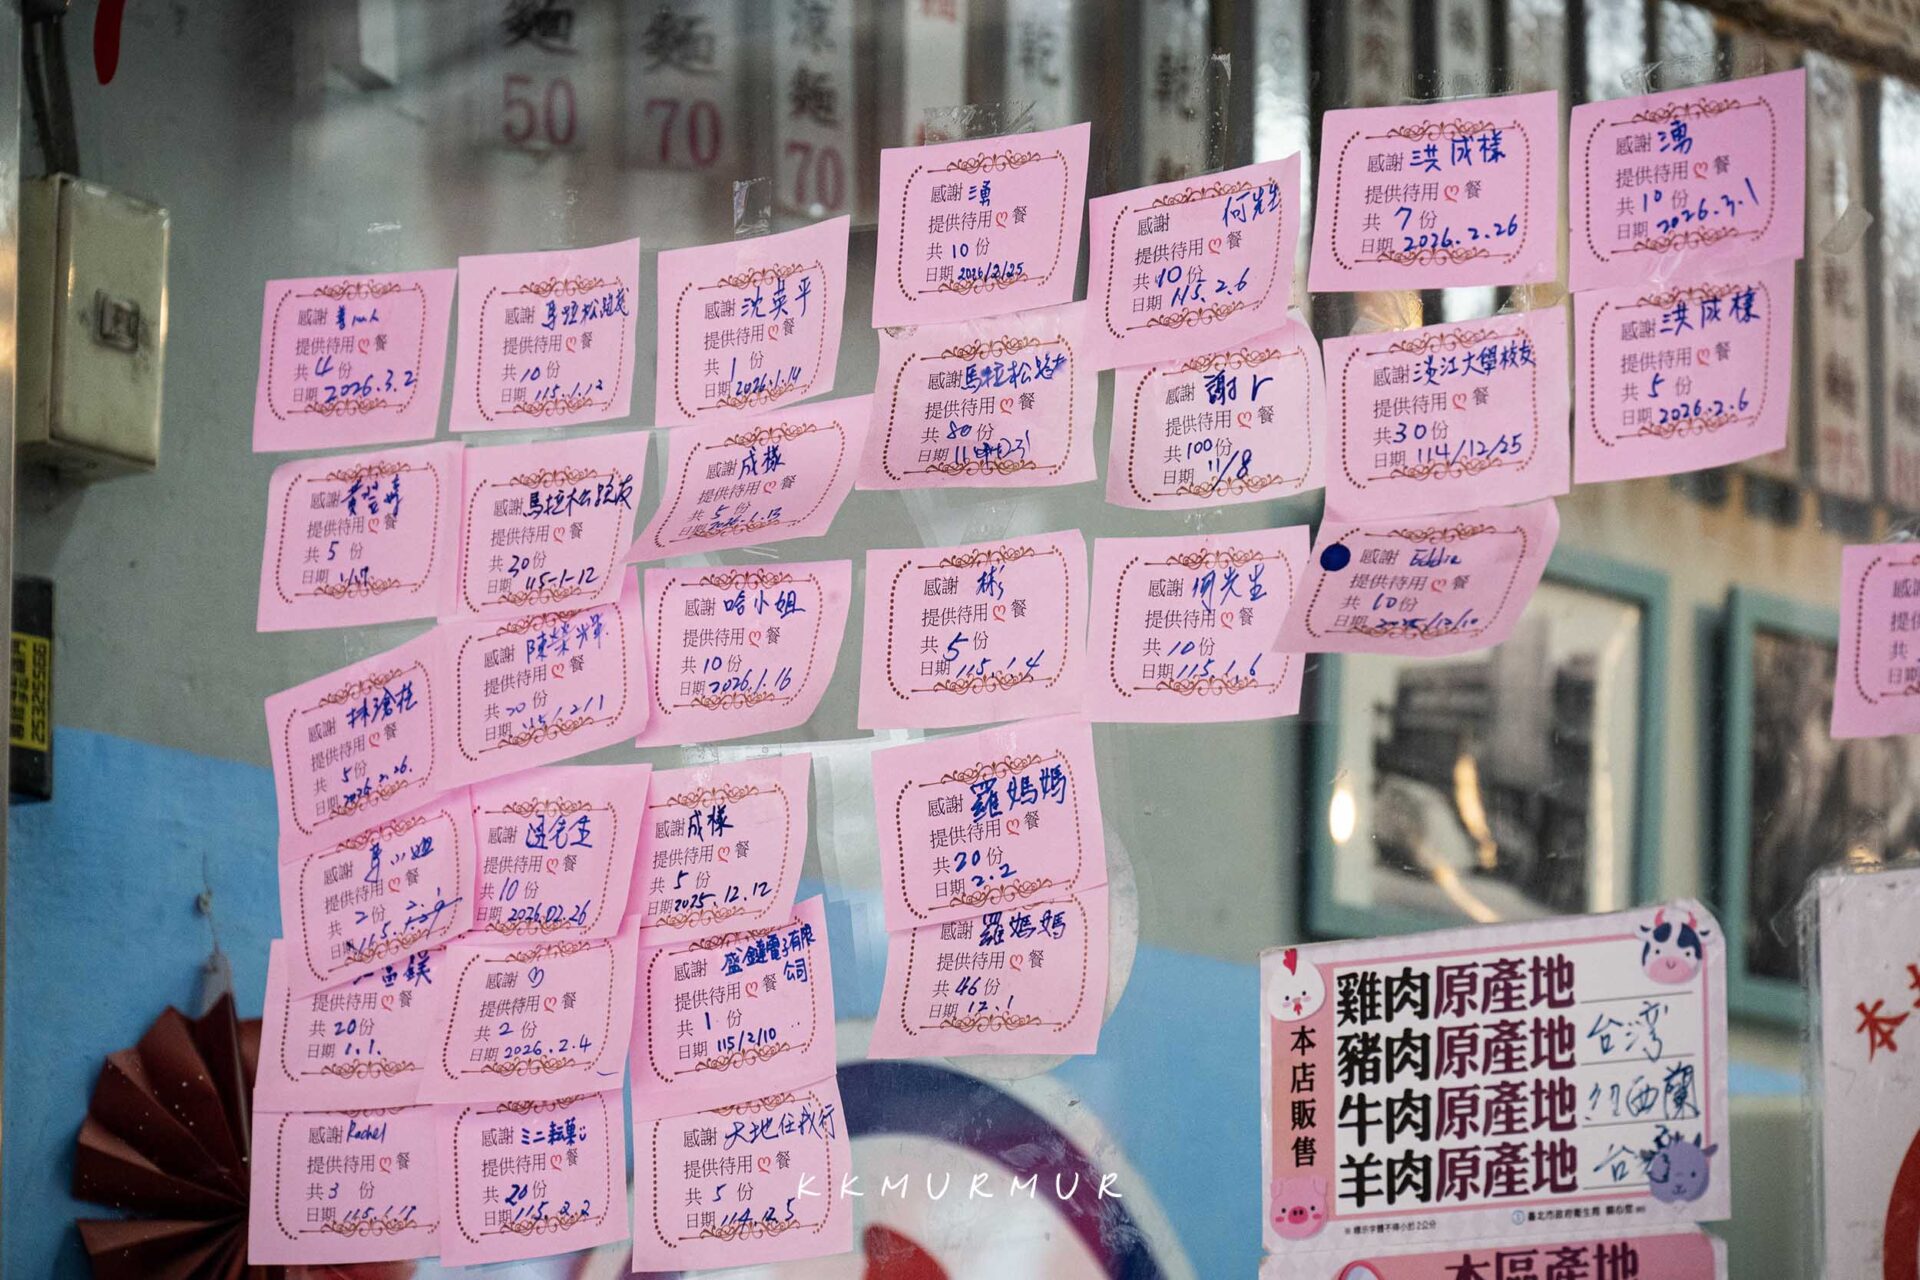 麵
50
麵
70
涼麵
70
乾
乾
感謝 湧
提供待用 餐
共 10 份
日期 2026/2/25
感謝 何先生
提供待用 餐
共 10 份
日期 115.2.6
感謝 洪成樣
提供待用 餐
共 7 份
日期 2026.2.26
感謝 湧
提供待用 餐
共 10 份
日期 2026.3.1
感謝
提供待用 餐
共 4 份
日期 2026.3.2
感謝 馬拉松跑友
提供待用 餐
共 10 份
日期 115.1.12
感謝 沈英平
提供待用 餐
共 1 份
日期 2026.1.14
感謝 馬拉松跑友
提供待用 餐
共 80 份
日期
感謝 謝r
提供待用 餐
共 100 份
日期 11/8
感謝 淡江大學校友
提供待用 餐
共 30 份
日期 114/12/25
感謝 洪成樣
提供待用 餐
共 5 份
日期 2026.2.6
感謝 黃翌婷
提供待用 餐
共 5 份
日期
感謝 馬拉松跑友
提供待用 餐
共 30 份
日期 115-1-12
感謝 成樣
提供待用 餐
共 5 份
日期 2026.1.13
感謝
提供待用 餐
共 5 份
日期 115.1.4
感謝 何先生
提供待用 餐
共 10 份
日期 115.1.6
感謝 Eddie
提供待用 餐
共 10 份
日期 2025/12/10
感謝
提供待用 餐
共 5 份
日期 2026.2.26.
感謝 陳榮輝
提供待用 餐
共 20 份
日期
感謝 哈小姐
提供待用 餐
共 10 份
日期 2026.1.16
感謝 小姐
提供待用 餐
共 2 份
日期 115.
感謝 先生
提供待用 餐
共 10 份
日期 2026.02.26
感謝 成樣
提供待用 餐
共 5 份
日期 2025.12.12
感謝 羅媽媽
提供待用 餐
共 20 份
日期 2.2
提供待用 餐
共 20 份
日期 1.1.
感謝 ♡
提供待用 餐
共 2 份
日期 2026.2.4
感謝 盛鐽電子有限公司
提供待用 餐
共 1 份
日期 115/2/10
感謝 羅媽媽
提供待用 餐
共 46 份
日期 12.1
感謝 Rachel
提供待用 餐
共 3 份
日期
感謝
提供待用 餐
共 20 份
日期 115.2.2
感謝 大地任我行
提供待用 餐
共 5 份
日期 114.12.5
KKMURMUR
本店販售
雞肉原產地
豬肉原產地 台灣
牛肉原產地 紐西蘭
羊肉原產地
※標示字體不得小於2公分
臺北市政府衛生局
本區產地